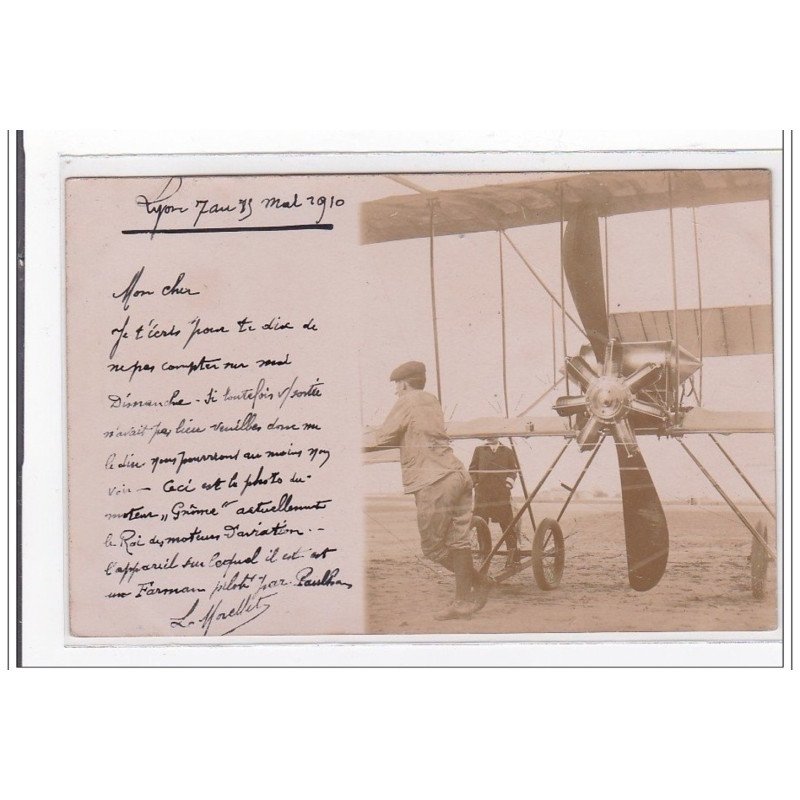 Lyon 7 au 15 Mai 1910
Mon cher
Je t'écris pour te dire de
ne pas compter sur moi
Dimanche - Si toutefois v/ sortie
n'avait pas lieu veuillez donc me
le dire nous pourrions au moins nous
voir - Ceci est la photo du
moteur "Gnôme" actuellement
le Roi des moteurs D'aviation --
l'appareil sur lequel il est est
un Farman piloté par Paulhan
L. Morellet